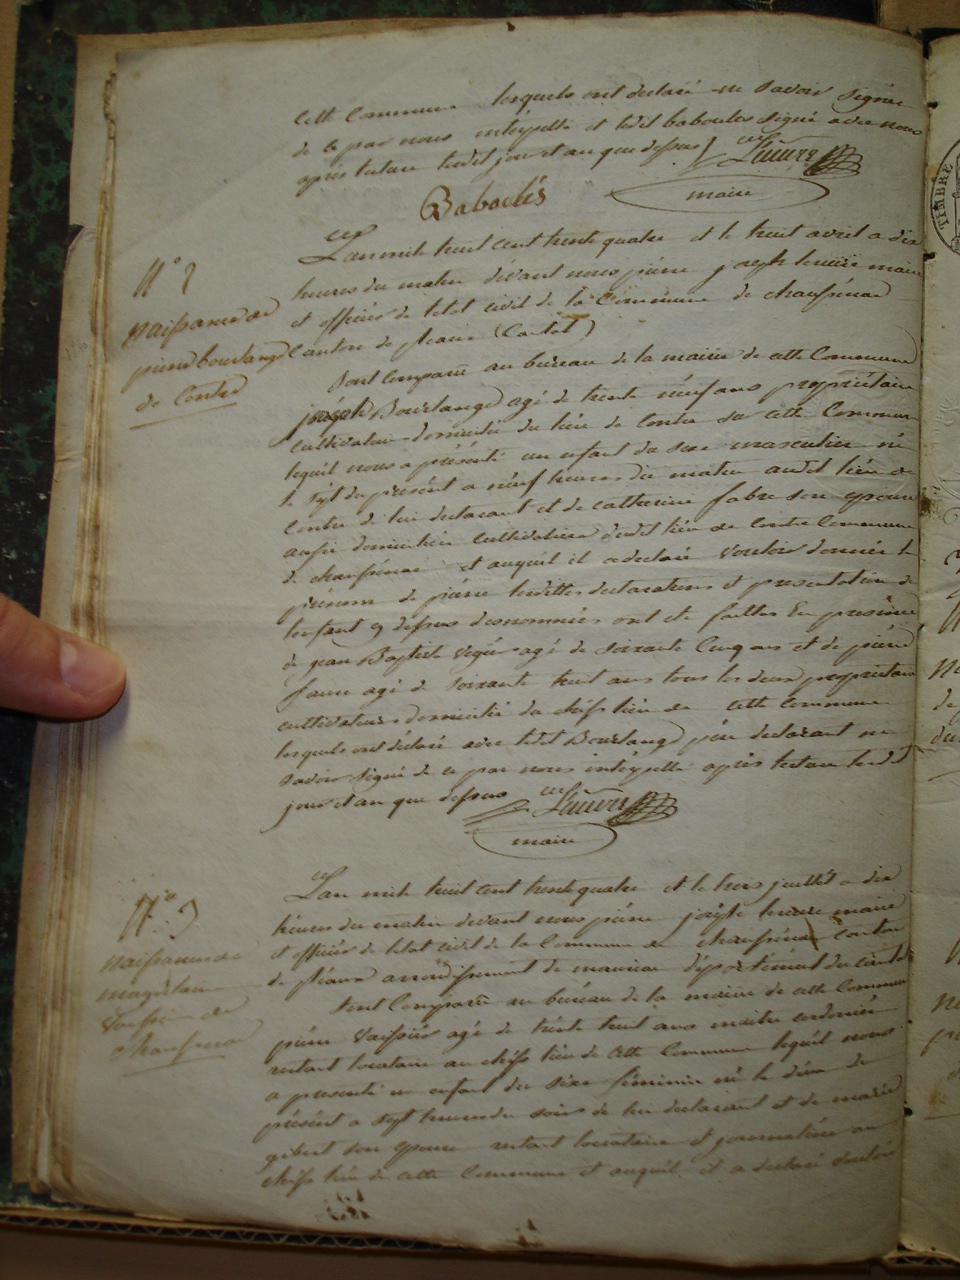 cette Commune lesquels ont declaré ne Savoir Signer
de ce par nous intérpellé et ledit baboules signé avec nous
apres lecture ledit jour et an que dessus
maire
L'an mil huit cent trente quatre et le huit avril a dix
heures du matin dévant nous piérre joseph maire
et officiér de letat civil de la Commune de chaussenac
Canton de pleaux (Cantal)
N°
naissance de
piérre bourlange
de Contre
Sont Comparu au bureau de la mairie de cette Commune
joseph Bourlange agé de trente neuf ans propriétaire
cultivateur domicilié du lieu de Contre sur cette Commune
lequél nous a présenté un enfant du sexe masculin né
le sept du présent a neuf heures du matin audit lieu de
Contre de lui declarant et de catherine fabre son epouse
aussi domiciliée cultivatrice dudit lieu de Contre Commune
de chaussenac et auquél il a declaré Vouloir donnér le
prénom de piérre lesdittes declarations et presentation de
lenfant cy dessus denommés ont été faittes En presénce
de jean Baptiste agé de soixante Cinq ans et de piérre
faure agé de Soixante huit ans tous les deux propriétaires
cultivateurs domicilié du chéf lieu de cette Commune
lesquels ont déclaré avec ledit Bourlange pére declarant ne
savoir Signé de ce par nous intérpellé apres lecture ledit
jour et an que dessus
maire
N° 3
naissance de
de
chaussenac
L'an mil huit cent trente quatre et le trois juillét a dix
heures du matin devant nous piérre joséph maire
et officiér de letat civil de la Commune de chaussenac Canton
de pléaux arrondissement de mauriac départément du cantal
Sont Comparu au buréau de la mairie de cette Commune
piérre Vaissiér agé de trente huit ans maitre cordonniér
restant locataire au chéf lieu de cette Commune lequél nous
a presenté un enfant du séxe féminin né le de
présent a sept heures du soir de lui declarant et de marie
gibert son epouse restant locataire et journaliére au
chéf lieu de cette Commune et auquél il a declaré vouloir
TIMBRE